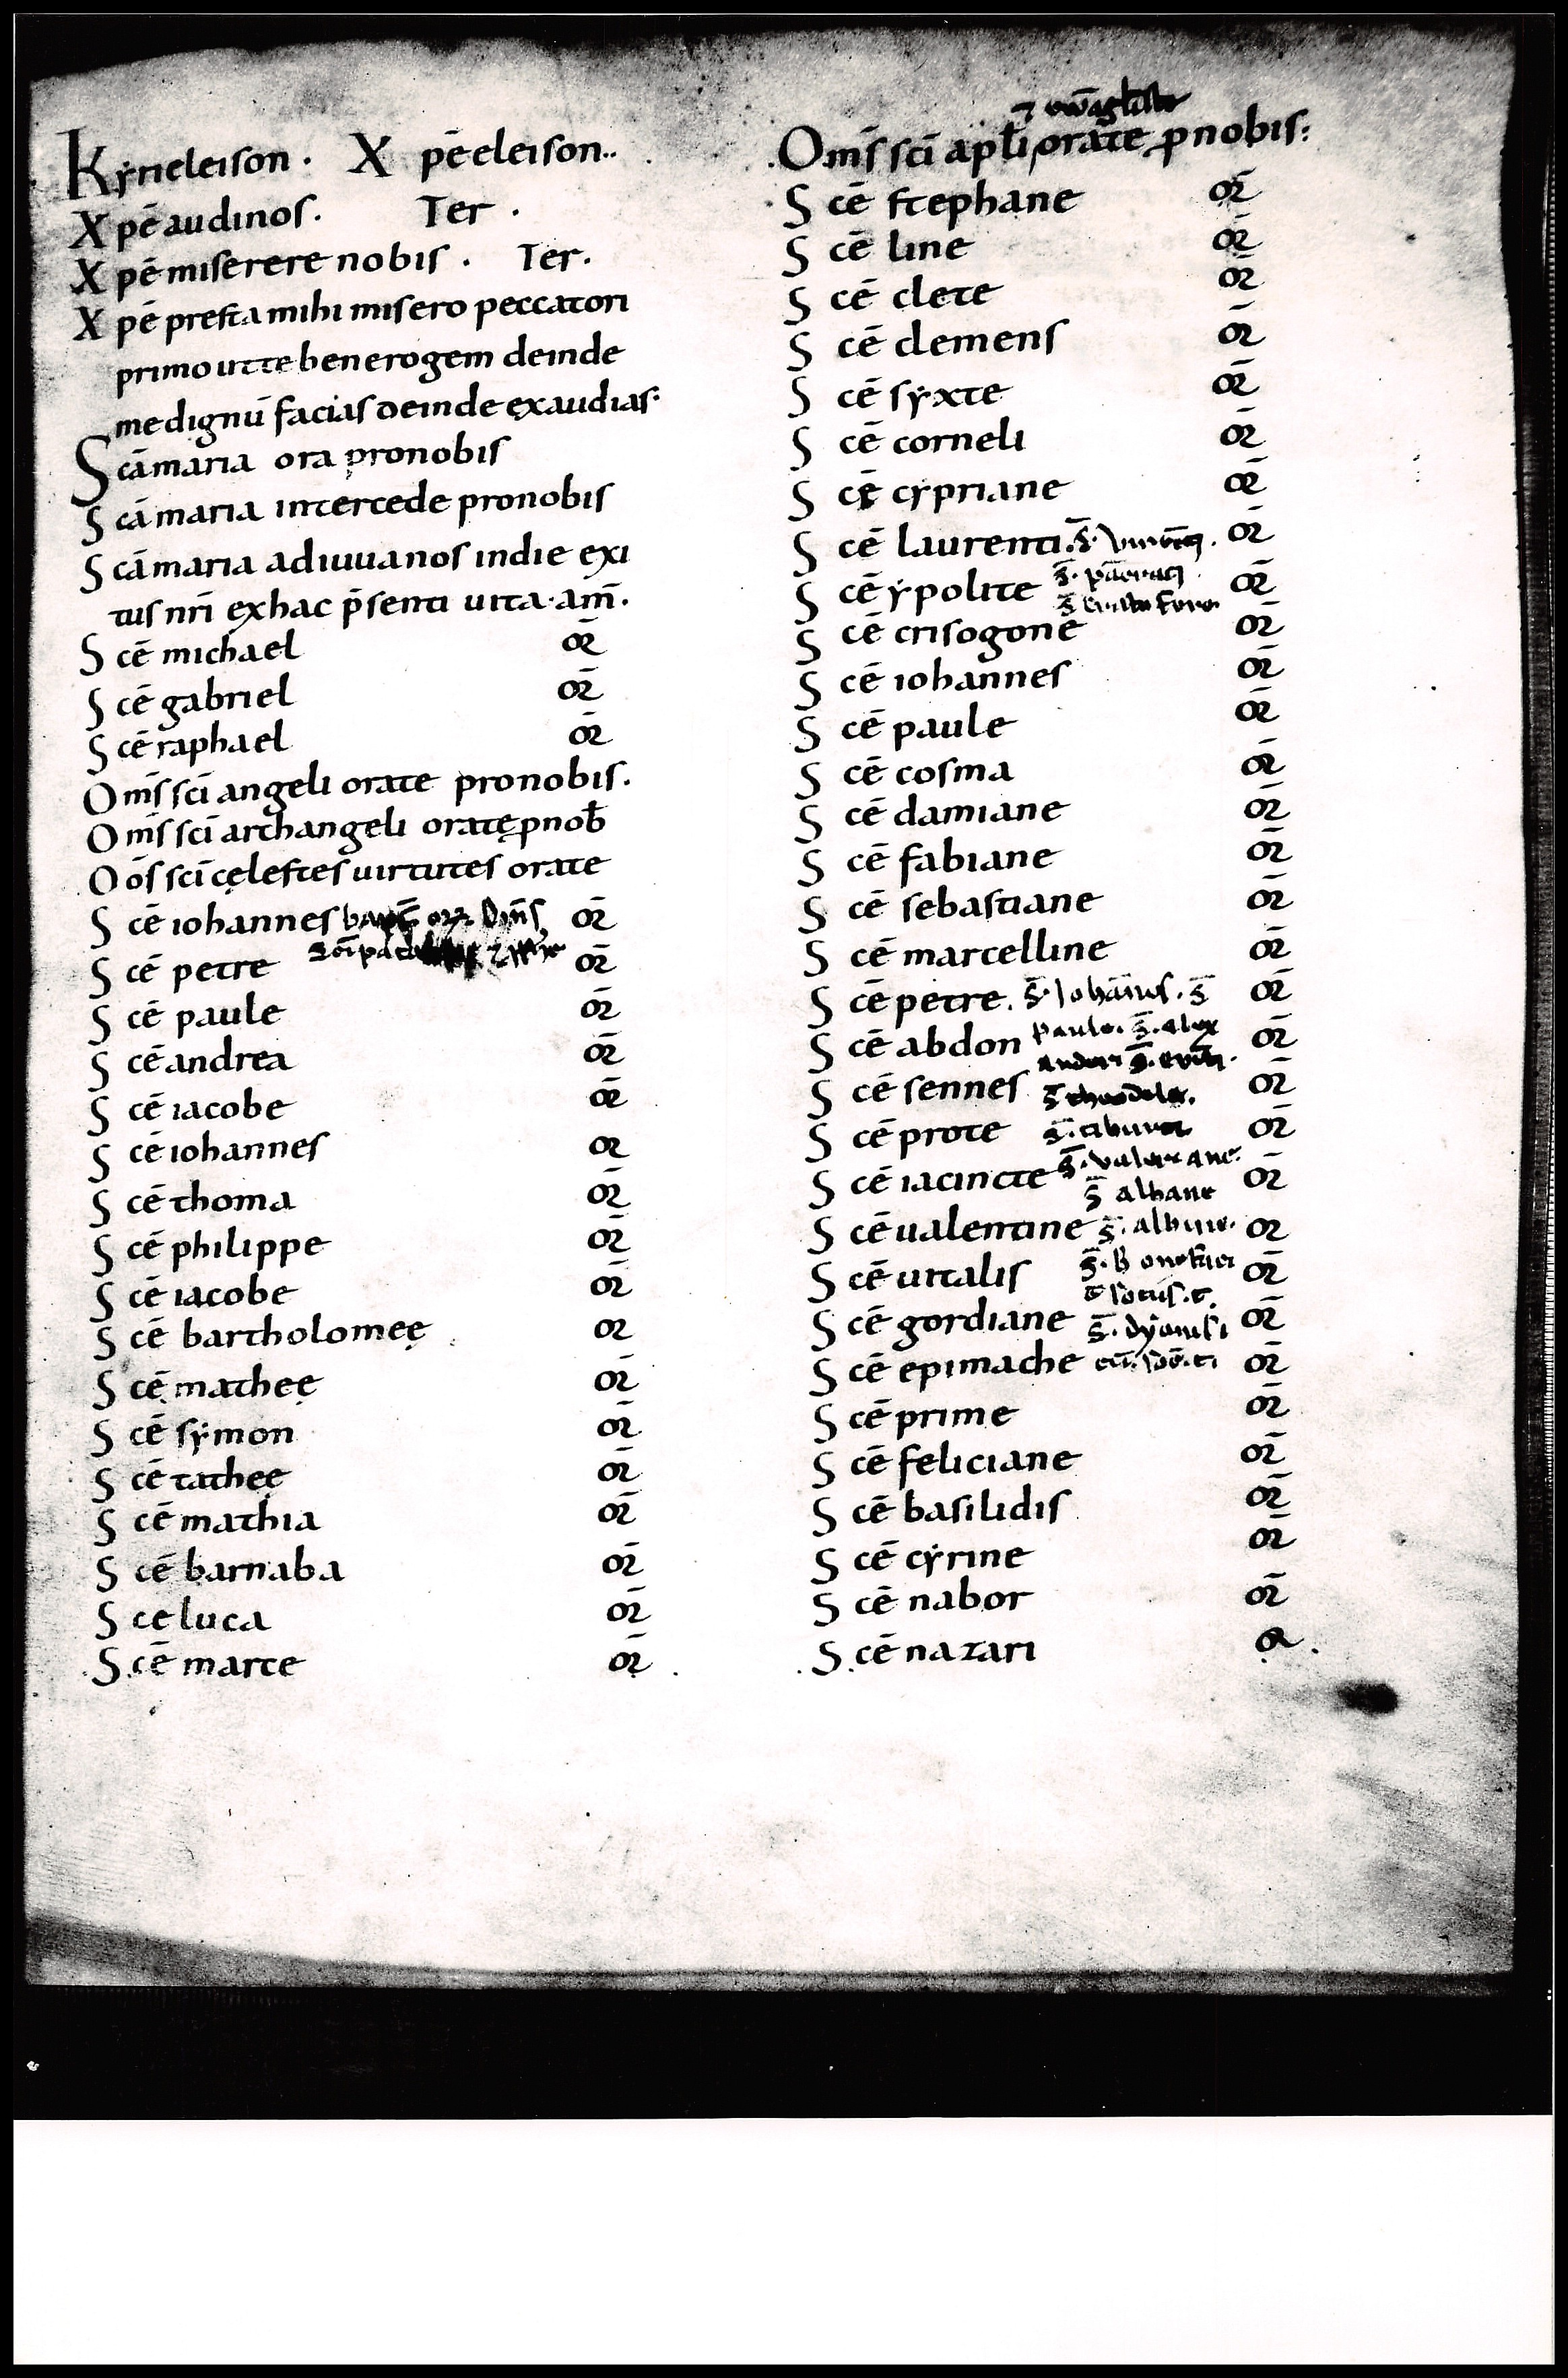 Kyrieleison. Xpē eleison..
Xpē audi nos. Ter.
Xpē miserere nobis. Ter.
Xpē presta mihi misero peccatori
primo ut te bene rogem deinde
me dignū facias deinde exaudias.
Scā maria ora pro nobis
Scā maria intercede pro nobis
Scā maria adiuua nos in die exi
tus nr̄i ex hac p̄senti uita. am̄.
Scē michael or̄
Scē gabriel or̄
Scē raphael or̄
Om̄s sc̄i angeli orate pro nobis.
Om̄s sc̄i archangeli oratę p nob̄
Oōs sc̄i cęlestes uirtutes orate
Scē iohannes or̄
Scē petre or̄
Scē paule or̄
Scē andrea or̄
Scē iacobe or̄
Scē iohannes or
Scē thoma or̄
Scē philippe or̄
Scē iacobe or̄
Scē bartholomeę or
Scē matheę or̄
Scē symon or̄
Scē tatheę or̄
Scē mathia or̄
Scē barnaba or̄
Sce luca or̄
Scē marce or̄
Om̄s sc̄i apl̄i orate p nobis:
Scē stephane or̄
Scē line or̄
Scē clete or̄
Scē clemens or̄
Scē syxte or̄
Scē corneli or̄
Scē cypriane or̄
Scē laurenti. or̄
Scē ypolite or̄
Scē crisogone or̄
Scē iohannes or̄
Scē paule or̄
Scē cosma or̄
Scē damiane or̄
Scē fabiane or̄
Scē sebastiane or̄
Scē marcelline or̄
Scē petre. s̄. Iohannes. s̄ or̄
Scē abdon paule. s̄. alex or̄
Scē sennes or̄
Scē prote or̄
Scē iacincte s̄. valeriane. or̄
s̄ albane
Scē ualentine s̄. albine. or
Scē uitalis or̄
Scē gordiane s̄. dyonisi or̄
Scē epimache or̄
Scē prime or̄
Scē feliciane or̄
Scē basilidis or̄
Scē cyrine or̄
Scē nabor or̄
Scē nazari or.